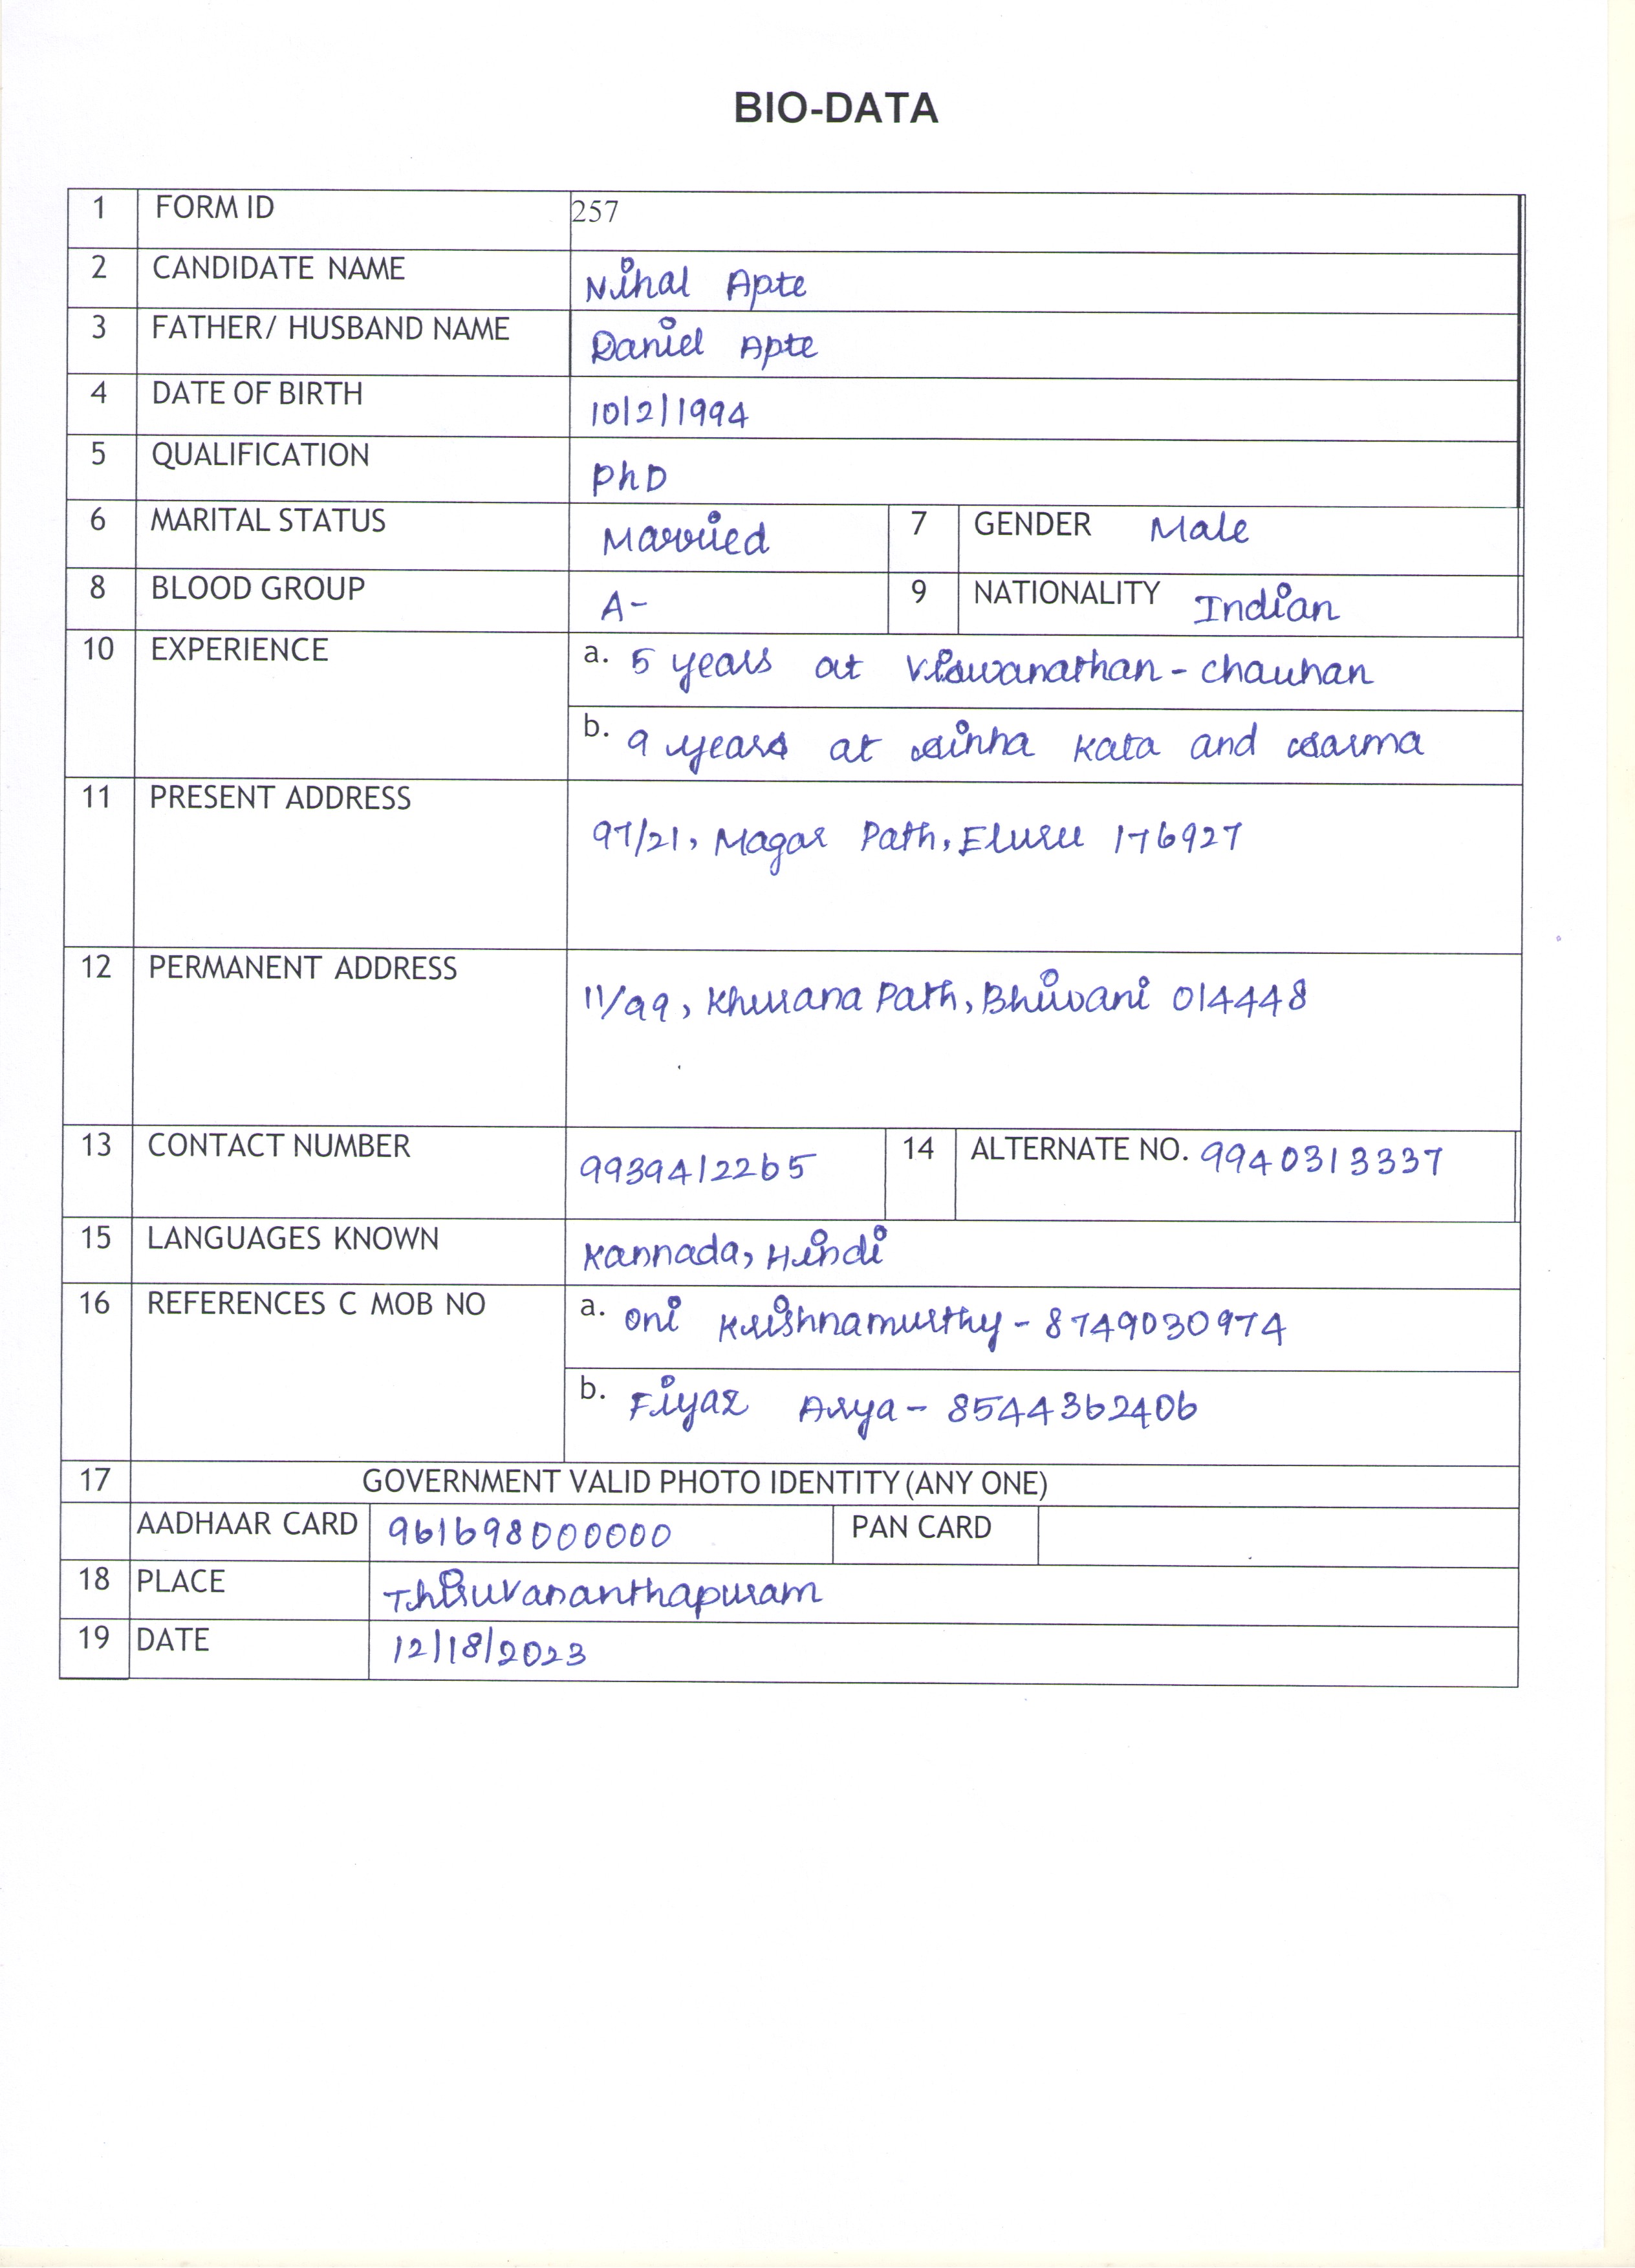 BIO-DATA
1 FORM ID 257
2 CANDIDATE NAME Nihal Apte
3 FATHER/ HUSBAND NAME Daniel Apte
4 DATE OF BIRTH 10/2/1994
5 QUALIFICATION PhD
6 MARITAL STATUS Married 7 GENDER Male
8 BLOOD GROUP A- 9 NATIONALITY Indian
10 EXPERIENCE a. 5 years at Viswanathan - Chauhan
b. 9 years at Sinha Kata and Sarma
11 PRESENT ADDRESS
97/21, Magar Path, Eluru 176927
12 PERMANENT ADDRESS
11/99, Khurana Path, Bhiwani 014448
13 CONTACT NUMBER 9939412265 14 ALTERNATE NO. 9940313337
15 LANGUAGES KNOWN Kannada, Hindi
16 REFERENCES C MOB NO a. Oni Krishnamurthy - 8749030974
b. Fiyaz Arya - 8544362406
17 GOVERNMENT VALID PHOTO IDENTITY (ANY ONE)
AADHAAR CARD 961698000000 PAN CARD
18 PLACE Thiruvananthapuram
19 DATE 12/18/2023